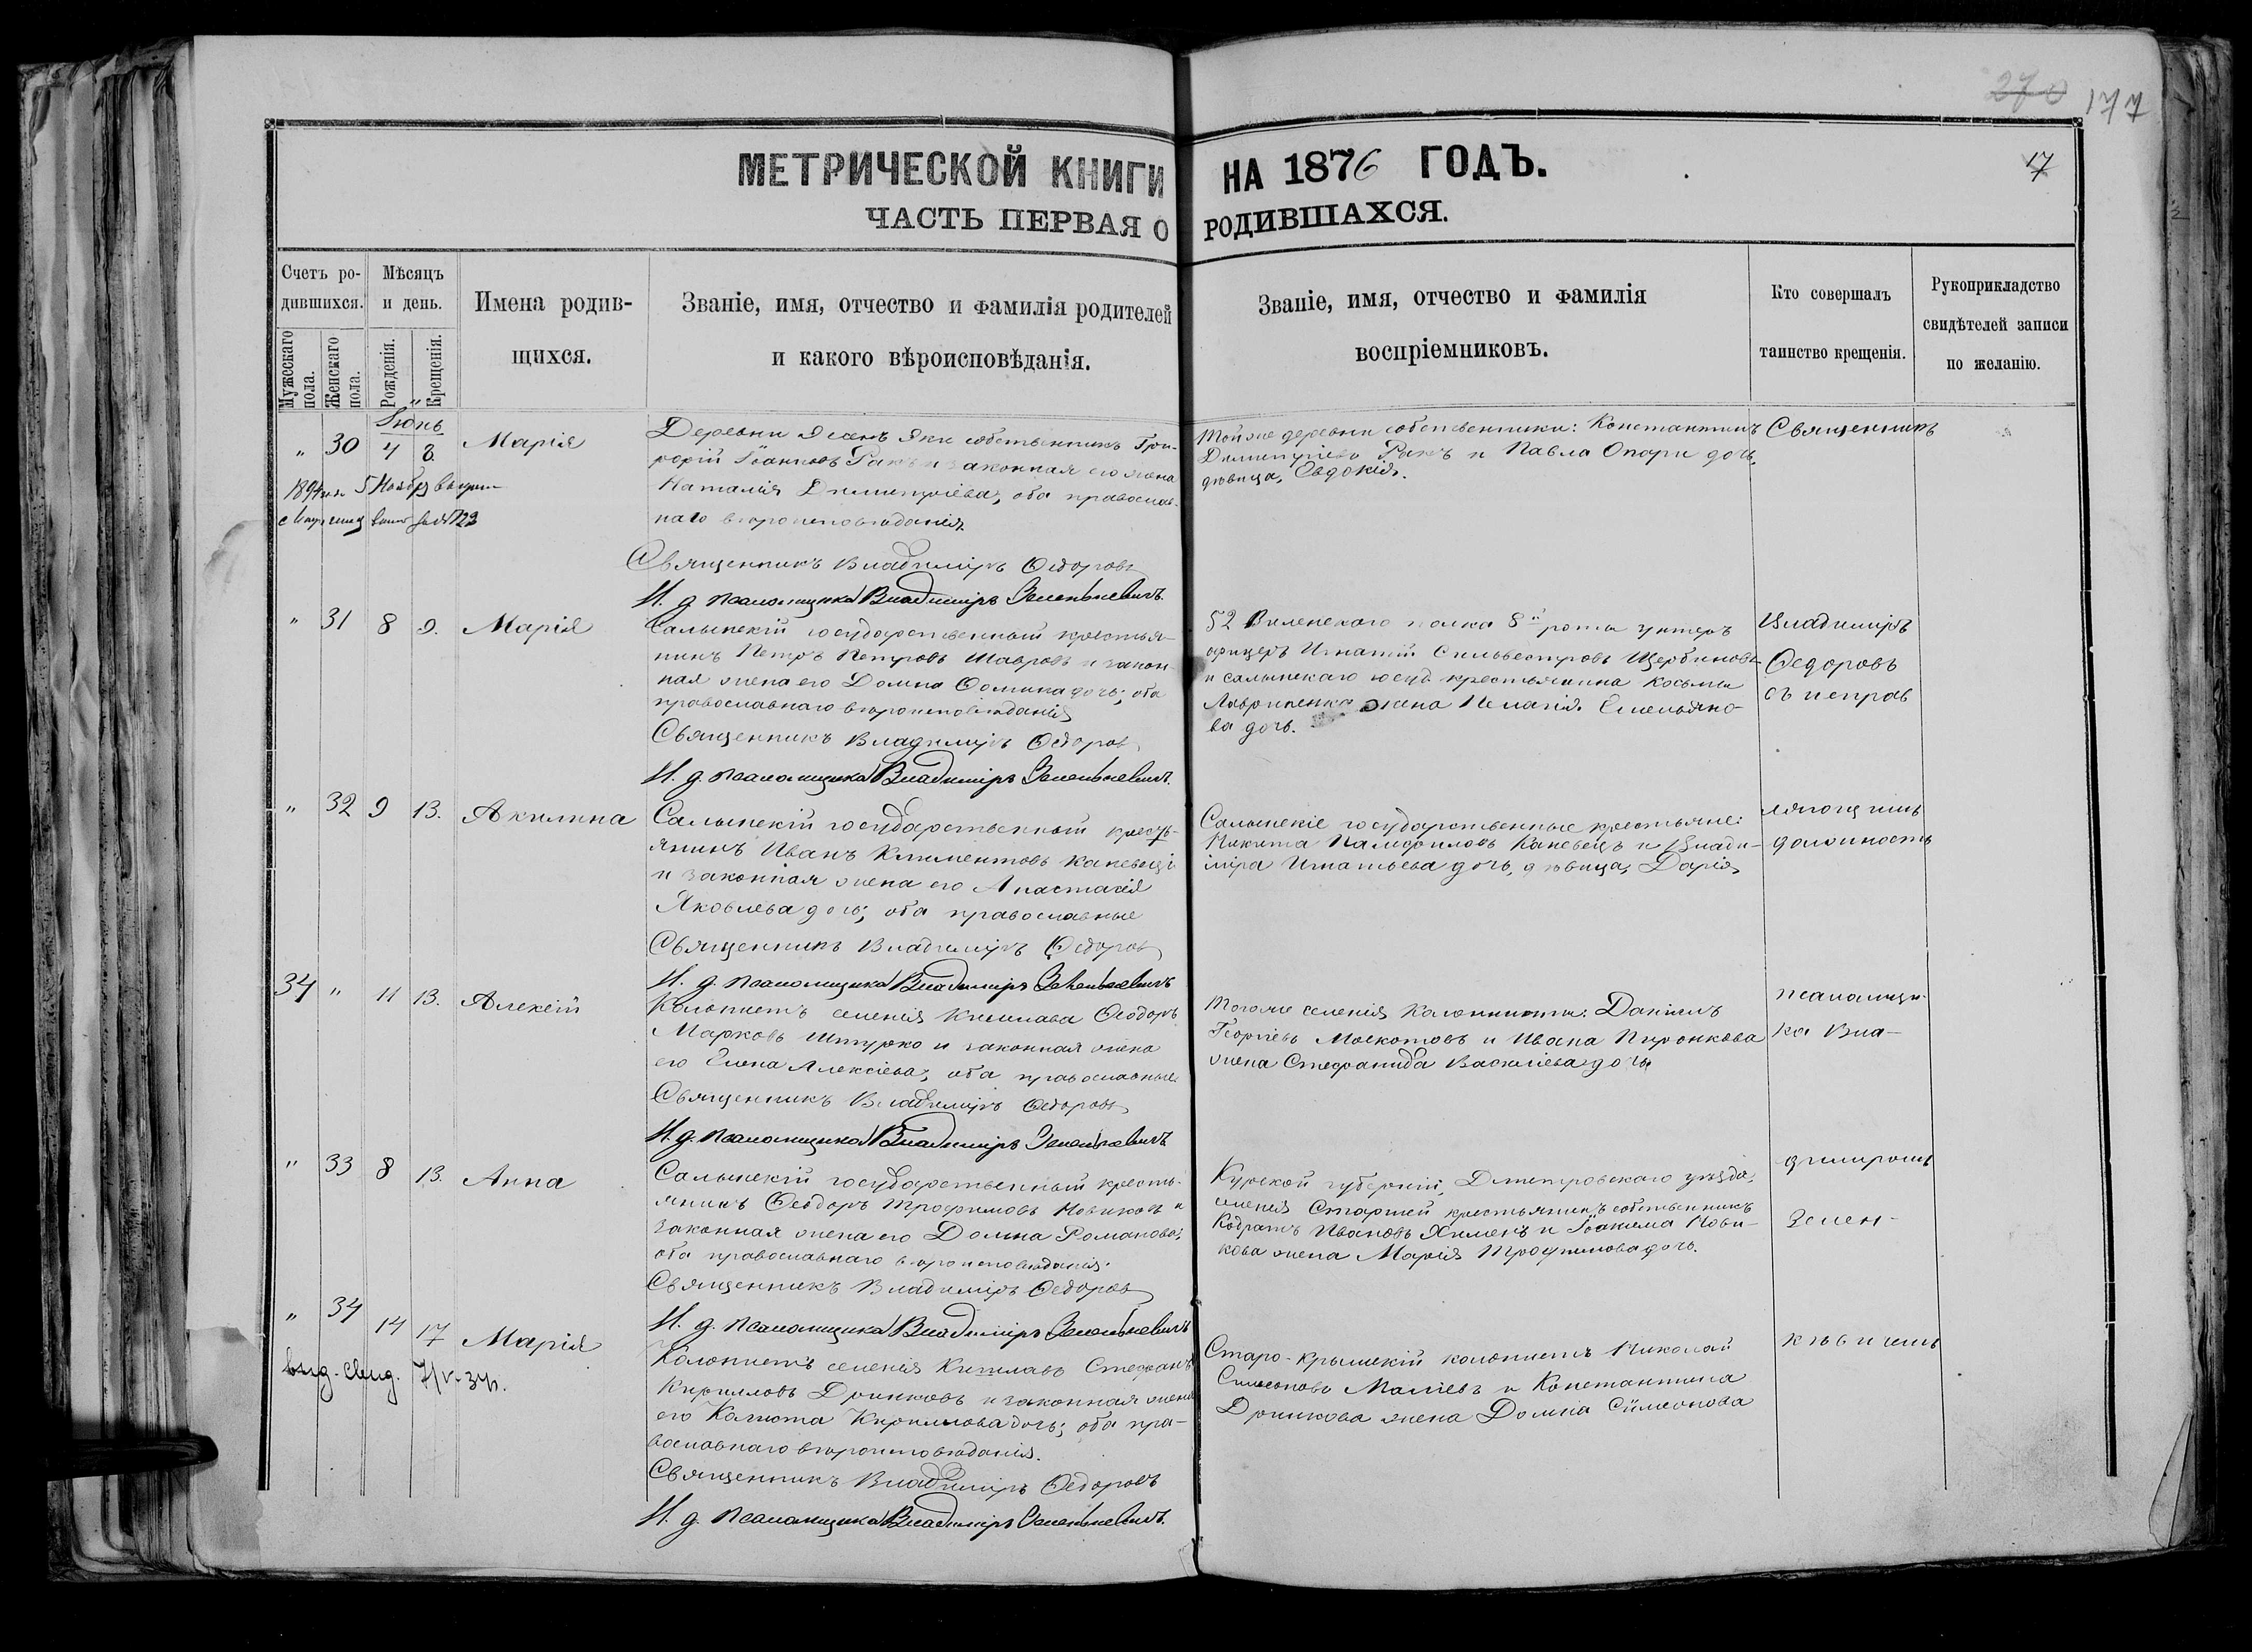 270 177
МЕТРИЧЕСКОЙ КНИГИ НА 1876 ГОДЪ.
17
ЧАСТЬ ПЕРВАЯ О РОДИВШАХСЯ.
Счетъ ро-
дившихся.
Мужескаго пола.
Женскаго пола.
Мѣсяцъ
и день.
Рожденія.
Крещенія.
Имена родив-
щихся.
Званіе, имя, отчество и фамилія родителей
и какого вѣроисповѣданія.
Званіе, имя, отчество и фамилія
воспріемниковъ.
Кто совершалъ
таинство крещенія.
Рукоприкладство
свидѣтелей записи
по желанію.
Іюнь
" 30 4 8 Марія
Деревни собственникъ Гри-
горій Іоанновъ Ракъ и законная его жена
Наталія Димитріева, оба православ-
наго вѣроисповѣданія
Священникъ Владиміръ Ѳедоровъ
И. д. псаломщика Владиміръ Зеленкевичъ.
Той же деревни собственники: Константинъ
Димитріевъ Ракъ и Павла Опари дочь,
дѣвица, Евдокія.
Священникъ
5 Нояб
" 31 8 9. Марія
Салынскій государственный крестья-
нинъ Петръ Петровъ Шавровъ и закон-
ная жена его Домна Ѳомина дочь; оба
православнаго вѣроисповѣданія
Священникъ Владиміръ Ѳедоровъ
И. д. псаломщика Владиміръ Зеленкевичъ.
52 Виленскаго полка 8й роты унтеръ
офицеръ Игнатій Сильвестровъ Щербиновъ
и салынскаго госуд. крестьянина Косьмы
Лавриненка жена Пелагія Емельяно-
ва дочь.
Владиміръ
Ѳедоровъ
съ исправ
" 32 9 13. Акилина
Салынскій государственный кресть-
янинъ Иванъ Климентовъ Каневецъ
и законная жена его Анастасія
Яковлева дочь; оба православные
Священникъ Владиміръ Ѳедоровъ
И. д. псаломщика Владиміръ Зеленкевичъ
Салынскіе государственные крестьяне:
Никита Памфиловъ Каневецъ и Влади-
міра Игнатьева дочь, дѣвица, Дарія
ляющимъ
должность
34 " 11 13. Алексій
Колонистъ селенія Кишлава Ѳеодоръ
Марковъ Штурко и законная жена
его Елена Алексіева; оба православные
Священникъ Владиміръ Ѳедоровъ
И. д. псаломщика Владиміръ Зеленкевичъ
Того же селенія колонисты: Даніилъ
Георгіевъ Москотовъ и Ивана Пиронкова
жена Стефанида Василіева дочь
псаломщи-
ка Вла-
" 33 8 13. Анна
Салынскій государственный кресть-
янинъ Ѳеодоръ Трофимовъ Новиковъ и
законная жена его Домна Романова;
оба православнаго вѣроисповѣданія.
Священникъ Владиміръ Ѳедоровъ
И. д. псаломщика Владиміръ Зеленкевичъ
Курской губерніи, Дмитровскаго уѣзда,
селенія Старшей крестьянинъ собственникъ
Кодратъ Ивановъ Химекъ и Іоакима Нови-
кова жена Марія Трофимова дочь.
диміромъ
Зелен-
" 34 14 17 Марія
выд. свид. 7/V-
Колонистъ селенія Кишлавъ Стефанъ
Кирилловъ Дринковъ и законная жена
его Калиста Кириллова дочь; оба пра-
вославнаго вѣроисповѣданія.
Священникъ Владиміръ Ѳедоровъ
И. д. псаломщика Владиміръ Зеленкевичъ.
Старо-крымскій колонистъ Николай
Симеоновъ Маліевъ и Константина
Дринкова жена Домна Симеонова
кѣвичемъ